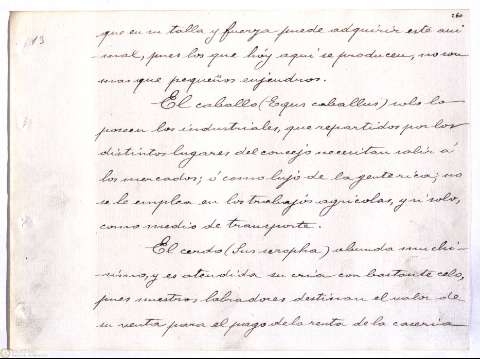 260
que en su talla y fuerza puede adquirir este ani
mal, pues los que hoy aqui se producen, no son
mas que pequeños engendros.
El caballo (Eqqus caballus) solo lo
poseen los industriales, que repartidos por los
distintos lugares del concejo necesitan salir á
los mercados; ó como lujo de la gente rica; no
se le emplea en los trabajos agrícolas, y si solo,
como medio de transporte.
El cerdo (Sus scropha) abunda muchi-
simo, y es atendida su cria con bastante celo,
pues nuestros labradores destinan el valor de
su venta para el pago de la renta de la caseria